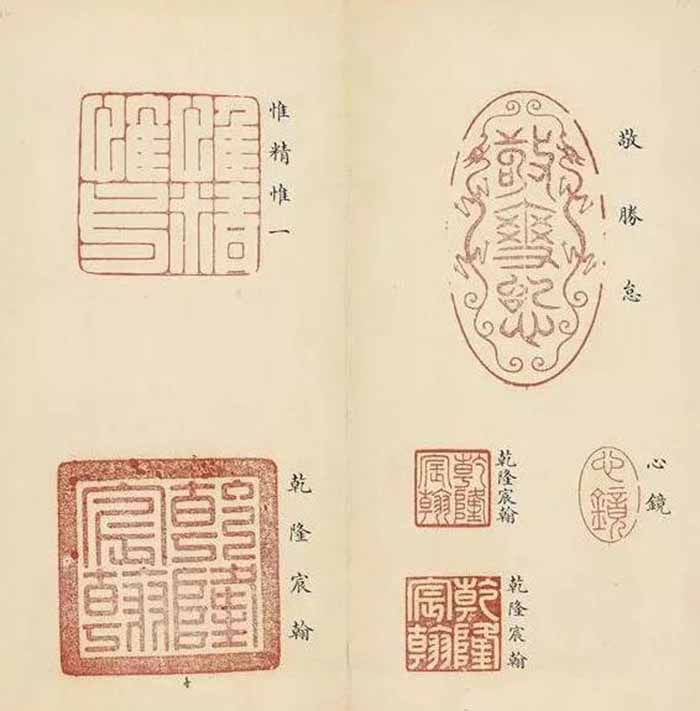 敬勝怠
敬勝怠
心鏡
心鏡
乾隆宸翰
乾隆
宸翰
乾隆宸翰
乾隆
宸翰
惟精惟一
惟精
惟一
乾隆宸翰
乾隆
宸翰